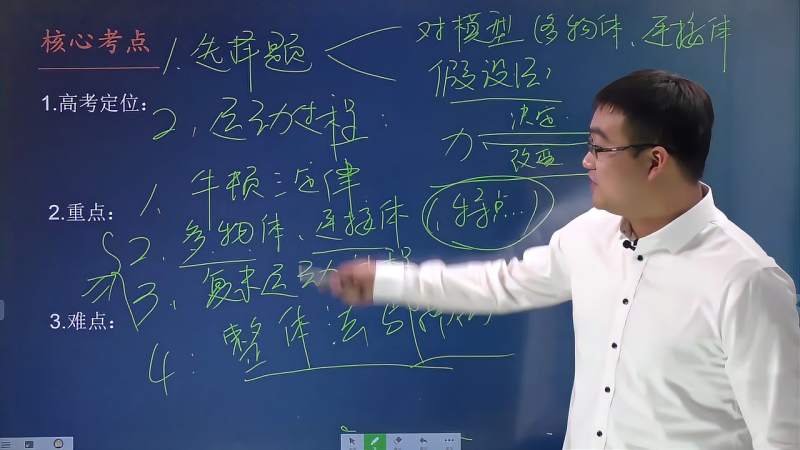 核心考点
1.选择题
对模型(多物体、连接体
假设法)
1.高考定位:
2.运动过程:
力
决定
改变
1.牛顿三定律
2.重点:
2.多物体、连接体
(特点...)
3.复杂运动过程
3.难点:
4:整体法与隔离